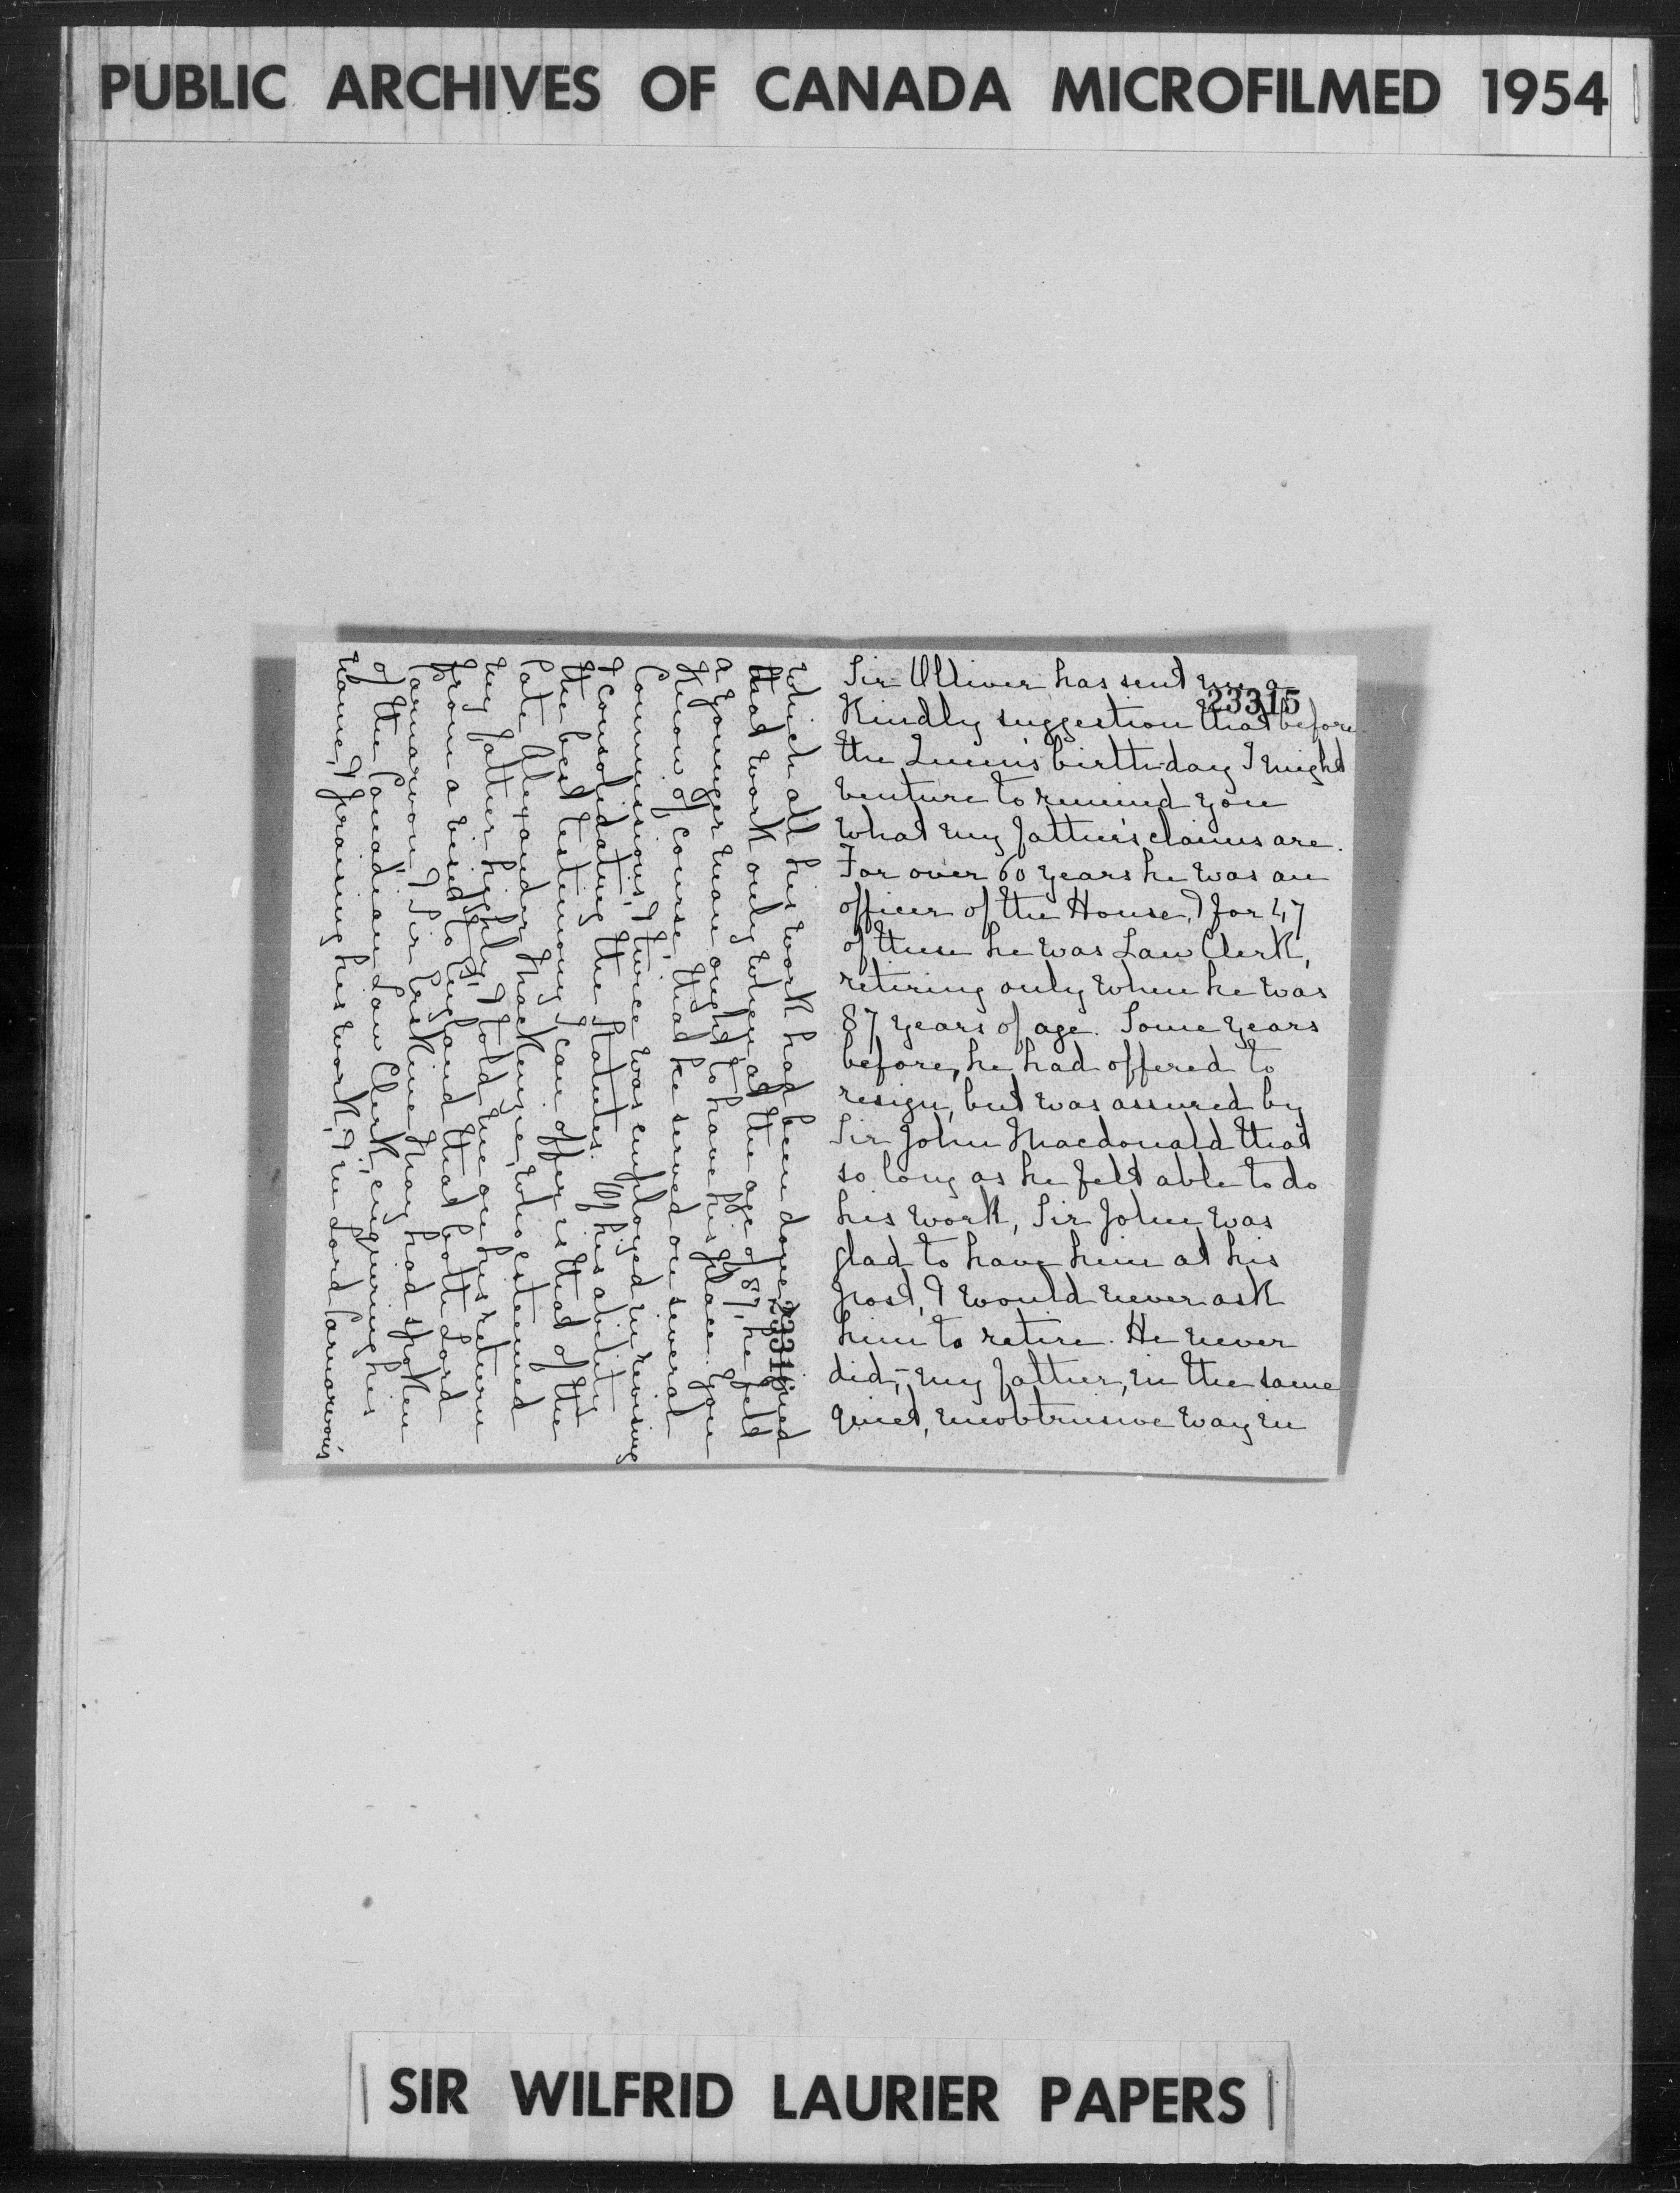 PUBLIC ARCHIVES OF CANADA MICROFILMED 1954
23315
Sir Oliver has sent me a
kindly suggestion that before
the Queen's birthday I might
venture to remind you
what my father's claims are.
For over 60 years he was an
officer of the House, & for 47
of these he was Law Clerk,
retiring only when he was
87 years of age. Some years
before, he had offered to
resign, but was assured by
Sir John Macdonald that
so long as he felt able to do
his work, Sir John was
glad to have him at his
post, & would never ask
him to retire. He never
did, – my father, in the same
quiet, unobtrusive way in
23316
which all his work had been done,
that work only when at the age of 87, he felt
a younger man ought to have his place. You
know of course, that he served on several
Commissions, & twice was employed in revising
& consolidating the Statutes. Of his ability
the best testimony I can offer is that of the
late Alexander Mackenzie, who esteemed
my father highly, & told me on his return
from a visit to England that both Lord
Carnarvon & Sir Erskine May had spoken
of the Canadian Law Clerk, enquiring his
name, & praising his work, & in Lord Carnarvon's
SIR WILFRID LAURIER PAPERS